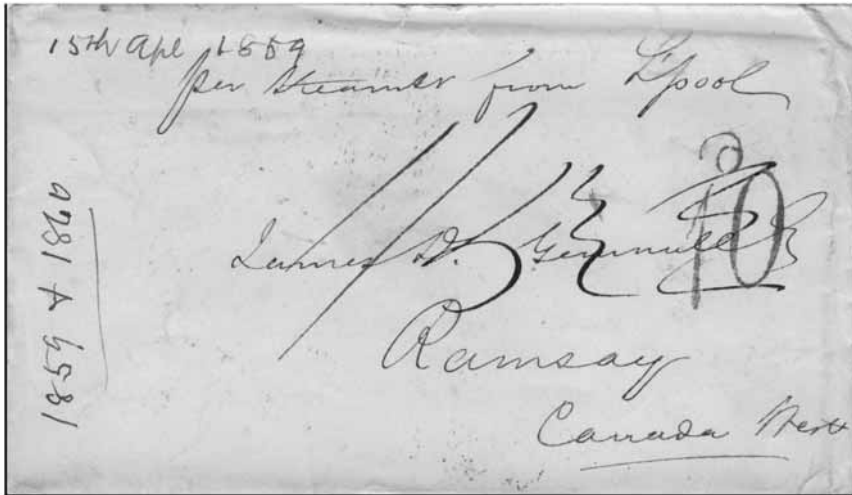 15th Apl 1859
per Steamer from L'pool
James D. Gemmill
Ramsay
Canada West
10
1859 + 1879